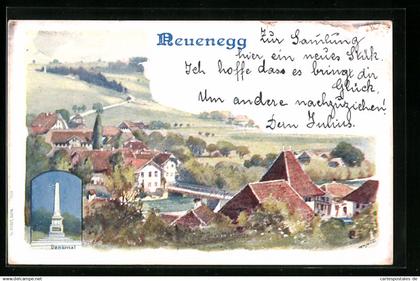 Neuenegg
Zur Samlung
hier ein neues Stük.
Ich hoffe dass es bringt dir
Glück,
Um andere nachzuziehen!
Dein Julius.
Denkmal